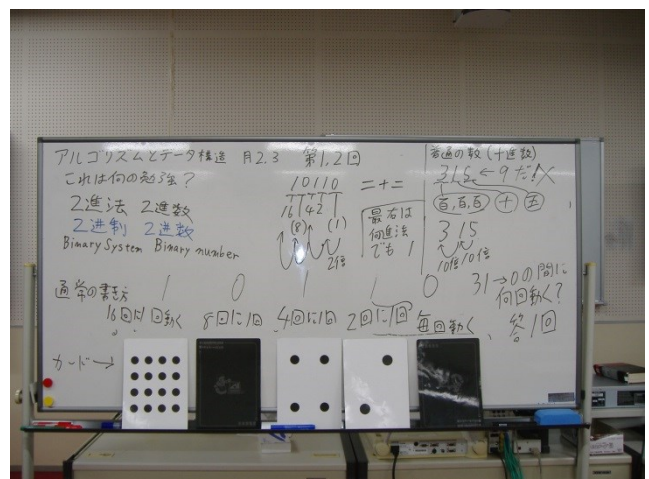 アルゴリズムとデータ構造 月2.3 第1,2回
これは何の勉強?
2進法 2進数
2进制 2进数
Binary System Binary number
10110 二十二
16 4 2
(8) (1)
2倍
最右は
何進法
でも1
普通の数(十進数)
315 ← 9だ!X
百,百,百 十 五
3 15
10倍 10倍
通常の書き方 1 0 1 1 0
31→0の間に
何回動く?
16回に1回動く 8回に1回 4回に1回 2回に1回 毎回動く 答1回
カード→